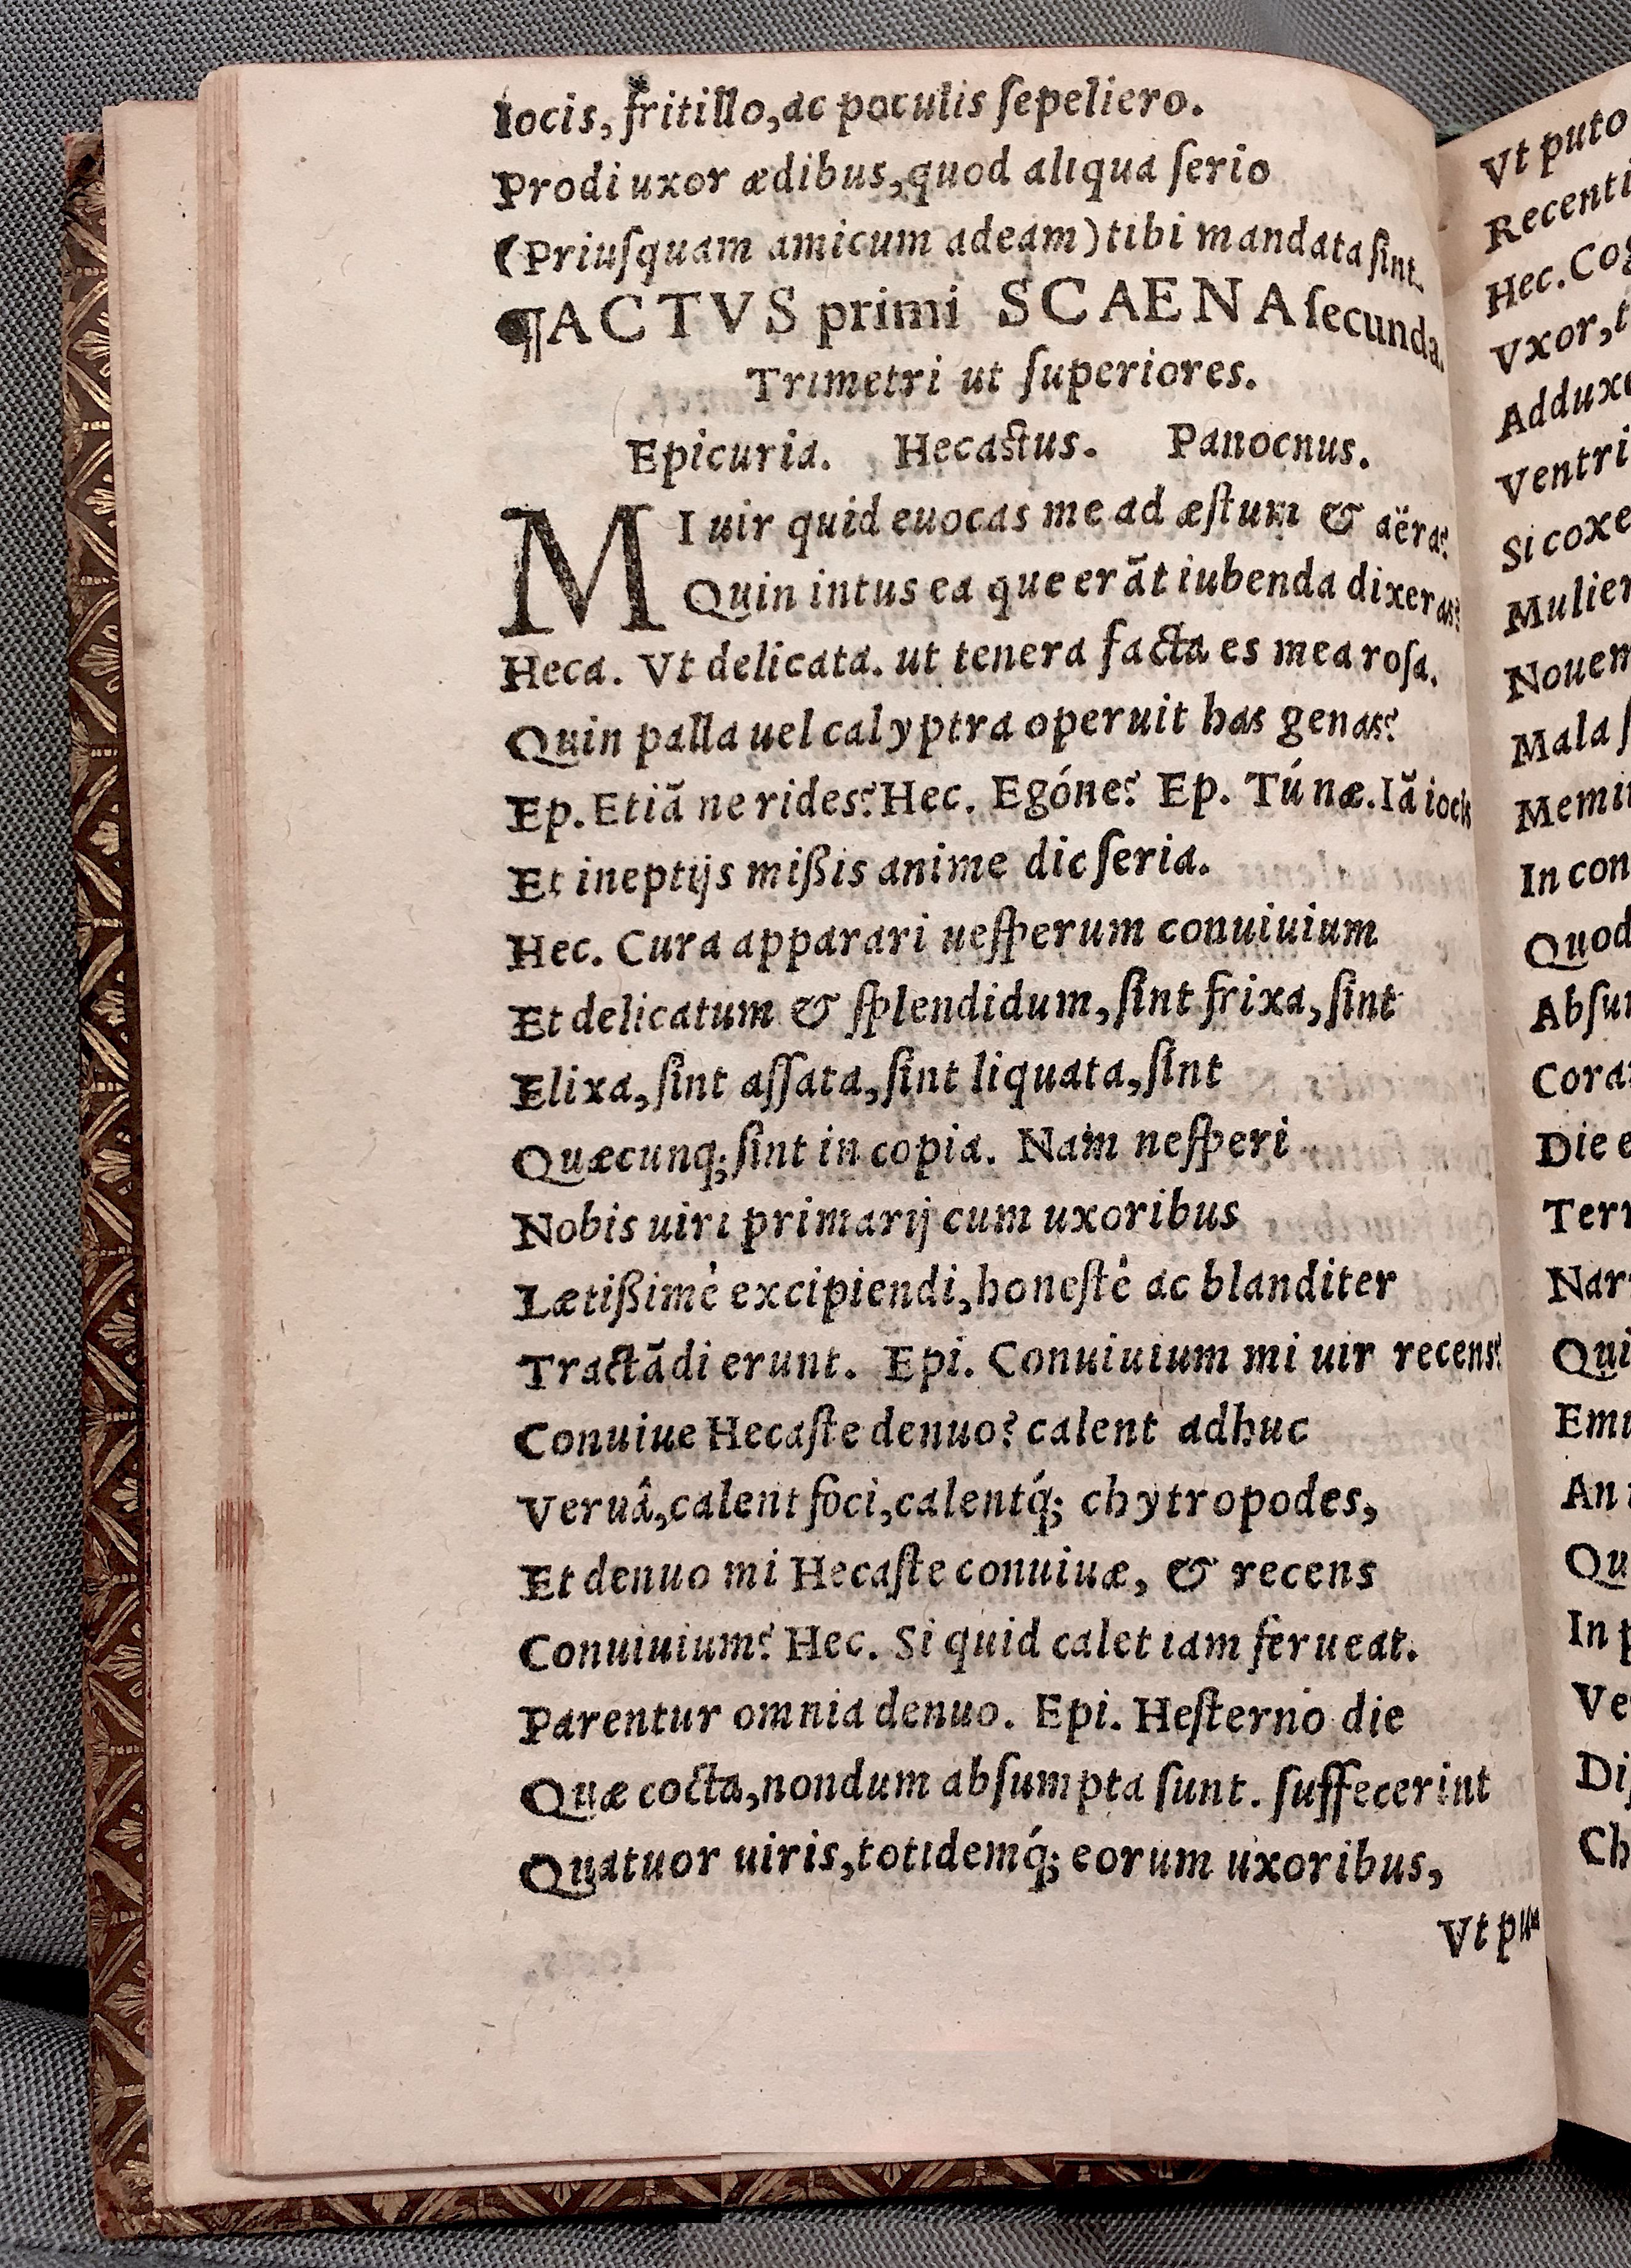 Iocis, fritillo, ac poculis ſepeliero.
Prodi uxor ædibus, quod aliqua ſerio
(Priuſquam amicum adeam) tibi mandata ſint.
¶ACTVS primi SCAENA ſecunda.
Trimetri ut ſuperiores.
Epicuria. Hecaſtus. Panocnus.
MI uir quid euocas me ad æſtum & aëra?
Quin intus ea que erãt iubenda dixeras?
Heca. Vt delicata. ut tenera facta es mea roſa.
Quin palla uel calyptra operuit has genas?
Ep. Etiã ne rides? Hec. Egóne? Ep. Tú næ. Iã iocis
Et ineptijs mißis anime dic ſeria.
Hec. Cura apparari ueſperum conuiuium
Et delicatum & ſplendidum, ſint frixa, ſint
Elixa, ſint aſſata, ſint liquata, ſint
Quæcunq; ſint in copia. Nam neſperi
Nobis uiri primarij cum uxoribus
Lætißimè excipiendi, honeſtè ac blanditer
Tractãdi erunt. Epi. Conuiuium mi uir recens?
Conuiue Hecaſte denuo? calent adhuc
Veruâ, calent foci, calentq́; chytropodes,
Et denuo mi Hecaſte conuiuæ, & recens
Conuiuium? Hec. Si quid calet iam ferueat.
Parentur omnia denuo. Epi. Heſterno die
Quæ cocta, nondum abſumpta ſunt. ſuffecerint
Quatuor uiris, totidemq́; eorum uxoribus,
Vt
Vt puto
Hec.
Vxor,
Si coxe
Mala
In con
Quod
Die
An
In